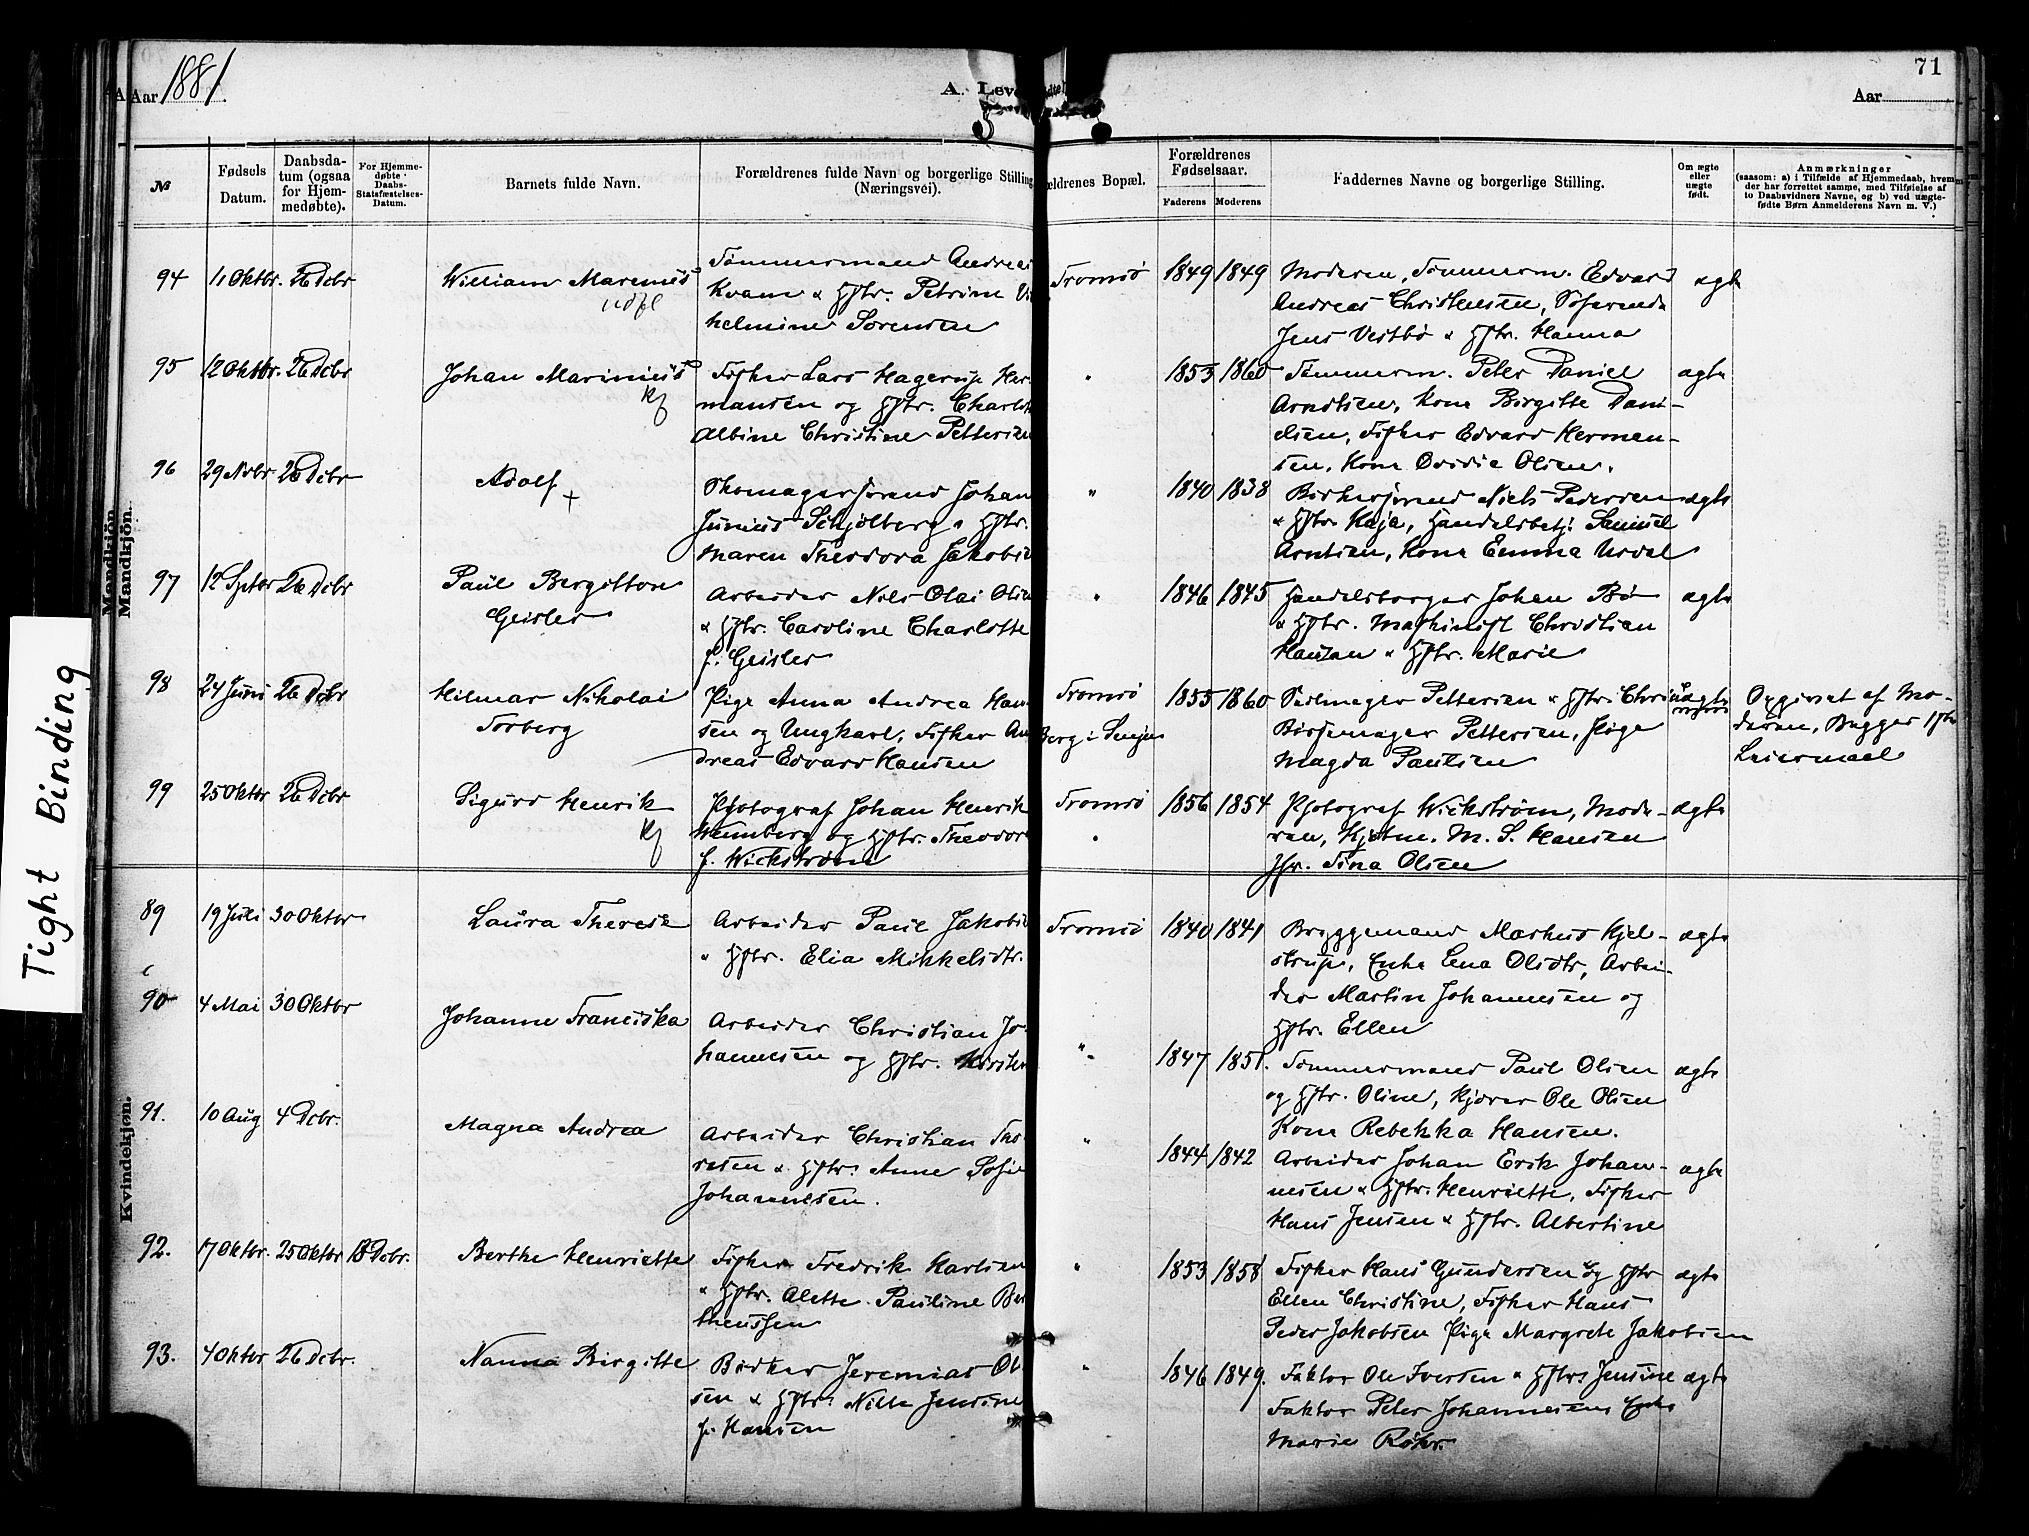 Aar 1881.
A. Leve
71
Aar
№
Fødsels
Datum.
Daabsda-
tum (ogsaa
for Hjem-
medøbte).
For Hjemme-
døbte
Daabs-
Statsfæstelses-
Datum.
Barnets fulde Navn.
Forældrenes fulde Navn og borgerlige Stilling
(Næringsvei).
ældrenes Bopæl.
Forældrenes
Fødselsaar.
Faderens
Moderens
Faddernes Navne og borgerlige Stilling.
Om ægte
eller
uægte
født.
Anmærkninger
(saasom: a) i Tilfælde af Hjemmedaab, hvem
der har forrettet samme, med Tilføielse af
to Daabsvidners Navne, og b) ved uægte-
fødte Børn Anmelderens Navn m. V.)
Mandkjøn.
Mandkjøn.
Tight Binding
94 11 Oktbr. 26 Dcbr William Marenius Tømmermand Andreas Tromsø 1849 1849 Moderen, Tømmerm. Edvard ægte
udfl Kvam & Hstr. Petrine Vi Andreas Christensen, Søfarende
helmine Sørensen Jens Vestbø & Hstr. Hanna
95 12 Oktbr. 26 Dcbr Johan Marinius Fisker Lars Hagerup Her " 1853 1860 Tømmerm. Peter Daniel ægte
mansen og Hstr. Charlott Arndtsen, Kone Birgitte Dani-
Albine Christine Pettersen elsen, Fisker Edvard Herman-
sen, Kone Olsen.
96 29 Nvbr. 26 Dcbr Adolf + Skomagersvend Johan " 1840 1838 Bødkersvend Niels Pedersen ægte
Junius Schjølberg & Hstr. & Hstr. Kaja, Handelsbetj. Samuel
Maren Theodora Jakobse Arntsen, Kone Emma
97 12 Sptbr 26 Dcbr Paul Bergitton Arbeider Nils Olai Olsen " 1846 1845 Handelsborger Johan Bø ægte
Geisler & Hstr. Caroline Charlotte & Hstr. Maskinist Christian
f. Geisler Hansen & Hstr. Marie
98 24 Juni 26 Dcbr Hilmar Nikolai Pige Anna Andrea Han Tromsø 1855 1860 Seilmager Pettersen & Hstr. uægte Opgivet af Mo-
Torberg sen og Ungkarl, Fisker An Berg i Senjen Børsemager Pettersen, Pige deren, Begges 1ste
dreas Edvard Hansen Magda Paulsen Leiermaal
99 25 Oktbr 26 Dcbr Sigurd Henrik Photograf Johan Henrik Tromsø 1856 1854 Photograf Wickstrøm, Mode- ægte
Wennberg og Hstr. Theodor " ren, Kjøbm. M. S. Hansen
f. Wickstrøm Jfr. Tina Olsen
Kvindekjøn.
89 19 Juli 30 Oktbr Laura Therese Arbeider Paul Jakobse Tromsø 1840 1841 Bryggemand Markus Kjel- ægte
& Hstr. Elia Mikkelsdtr. strup, Enke Lena Olsdtr, Arbei-
der Martin Johannesen og
Hstr. Ellen
90 4 Mai 30 Oktbr Johanne Franciska Arbeider Christian Jo " 1847 1851. Tømmermand Paul Olsen ægte
hannesen og Hstr. Kirsten og Hstr. Oline, Kjører Ole Olsen
Kone Rebekka Hansen.
91. 10 Aug 4 Dcbr. Magna Andrea Arbeider Christian Tho " 1844 1842 Arbeider Johan Erik Johan- ægte
resen & Hstr. Anne Sofie nesen & Hstr. Henriette, Fisker
Johannesen. Hans Jensen & Hstr. Albertine
92. 17 Oktbr. 25 Oktbr 18 Dcbr. Berthe Henriette Fisker Fredrik Karlsen " 1853 1858 Fisker Hans Gundersen og Hstr ægte
& Hstr. Alette Pauline Ber Ellen Christine, Fisker Hans
theussen Peder Jakobsen Pige Margrete Jakobsen
93. 4 Oktbr 26 Dcbr. Nanna Birgitte Bødker Jeremias Ol " 1846 1849. Faktor Ole Iversen & Hstr. Jensine ægte
sen & Hstr. Nille Jensine Faktor Peter Johannesen, Enke
f. Hansen Marie Røhr.